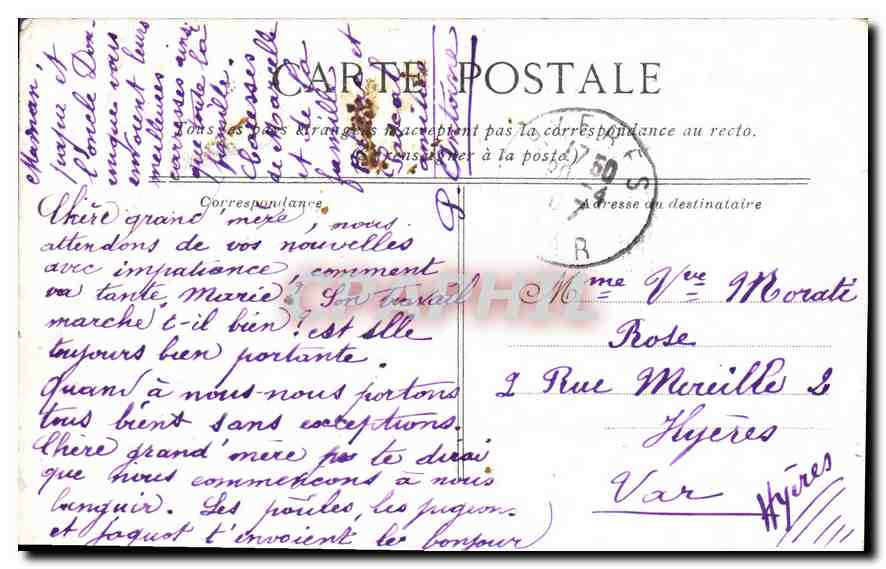 CARTE POSTALE
Tous les pays étrangers n'acceptent pas la correspondance au recto.
(Se renseigner à la poste.)
Correspondance
Adresse du destinataire
Chère grand'mère, nous
attendons de vos nouvelles
avec impatiance, comment
va tante, Marie? Son travail
marche, t-il bien! est elle
toujours bien portante.
Quand à nous-nous portons
tous bient sans exceptions.
Chère grand'mère je te dirai
que nous commencons à nous
languir. Les poules, les pigeon-
et Jaquot t'envoient le bonjour
Maman,
papa et
l'oncle Dom-
inque vous
envoient leurs
meilleures
caresses ainsi
que toute la
famille.
Caresses
de Marcelle
et de la
famille
et
amitiés
P. Antoine
HYERES
17 50
-4
7
VAR
CPAPHIL
Mme Vve Moraté
Rose
2 Rue Mireille 2
Hyères
Var
Hyères